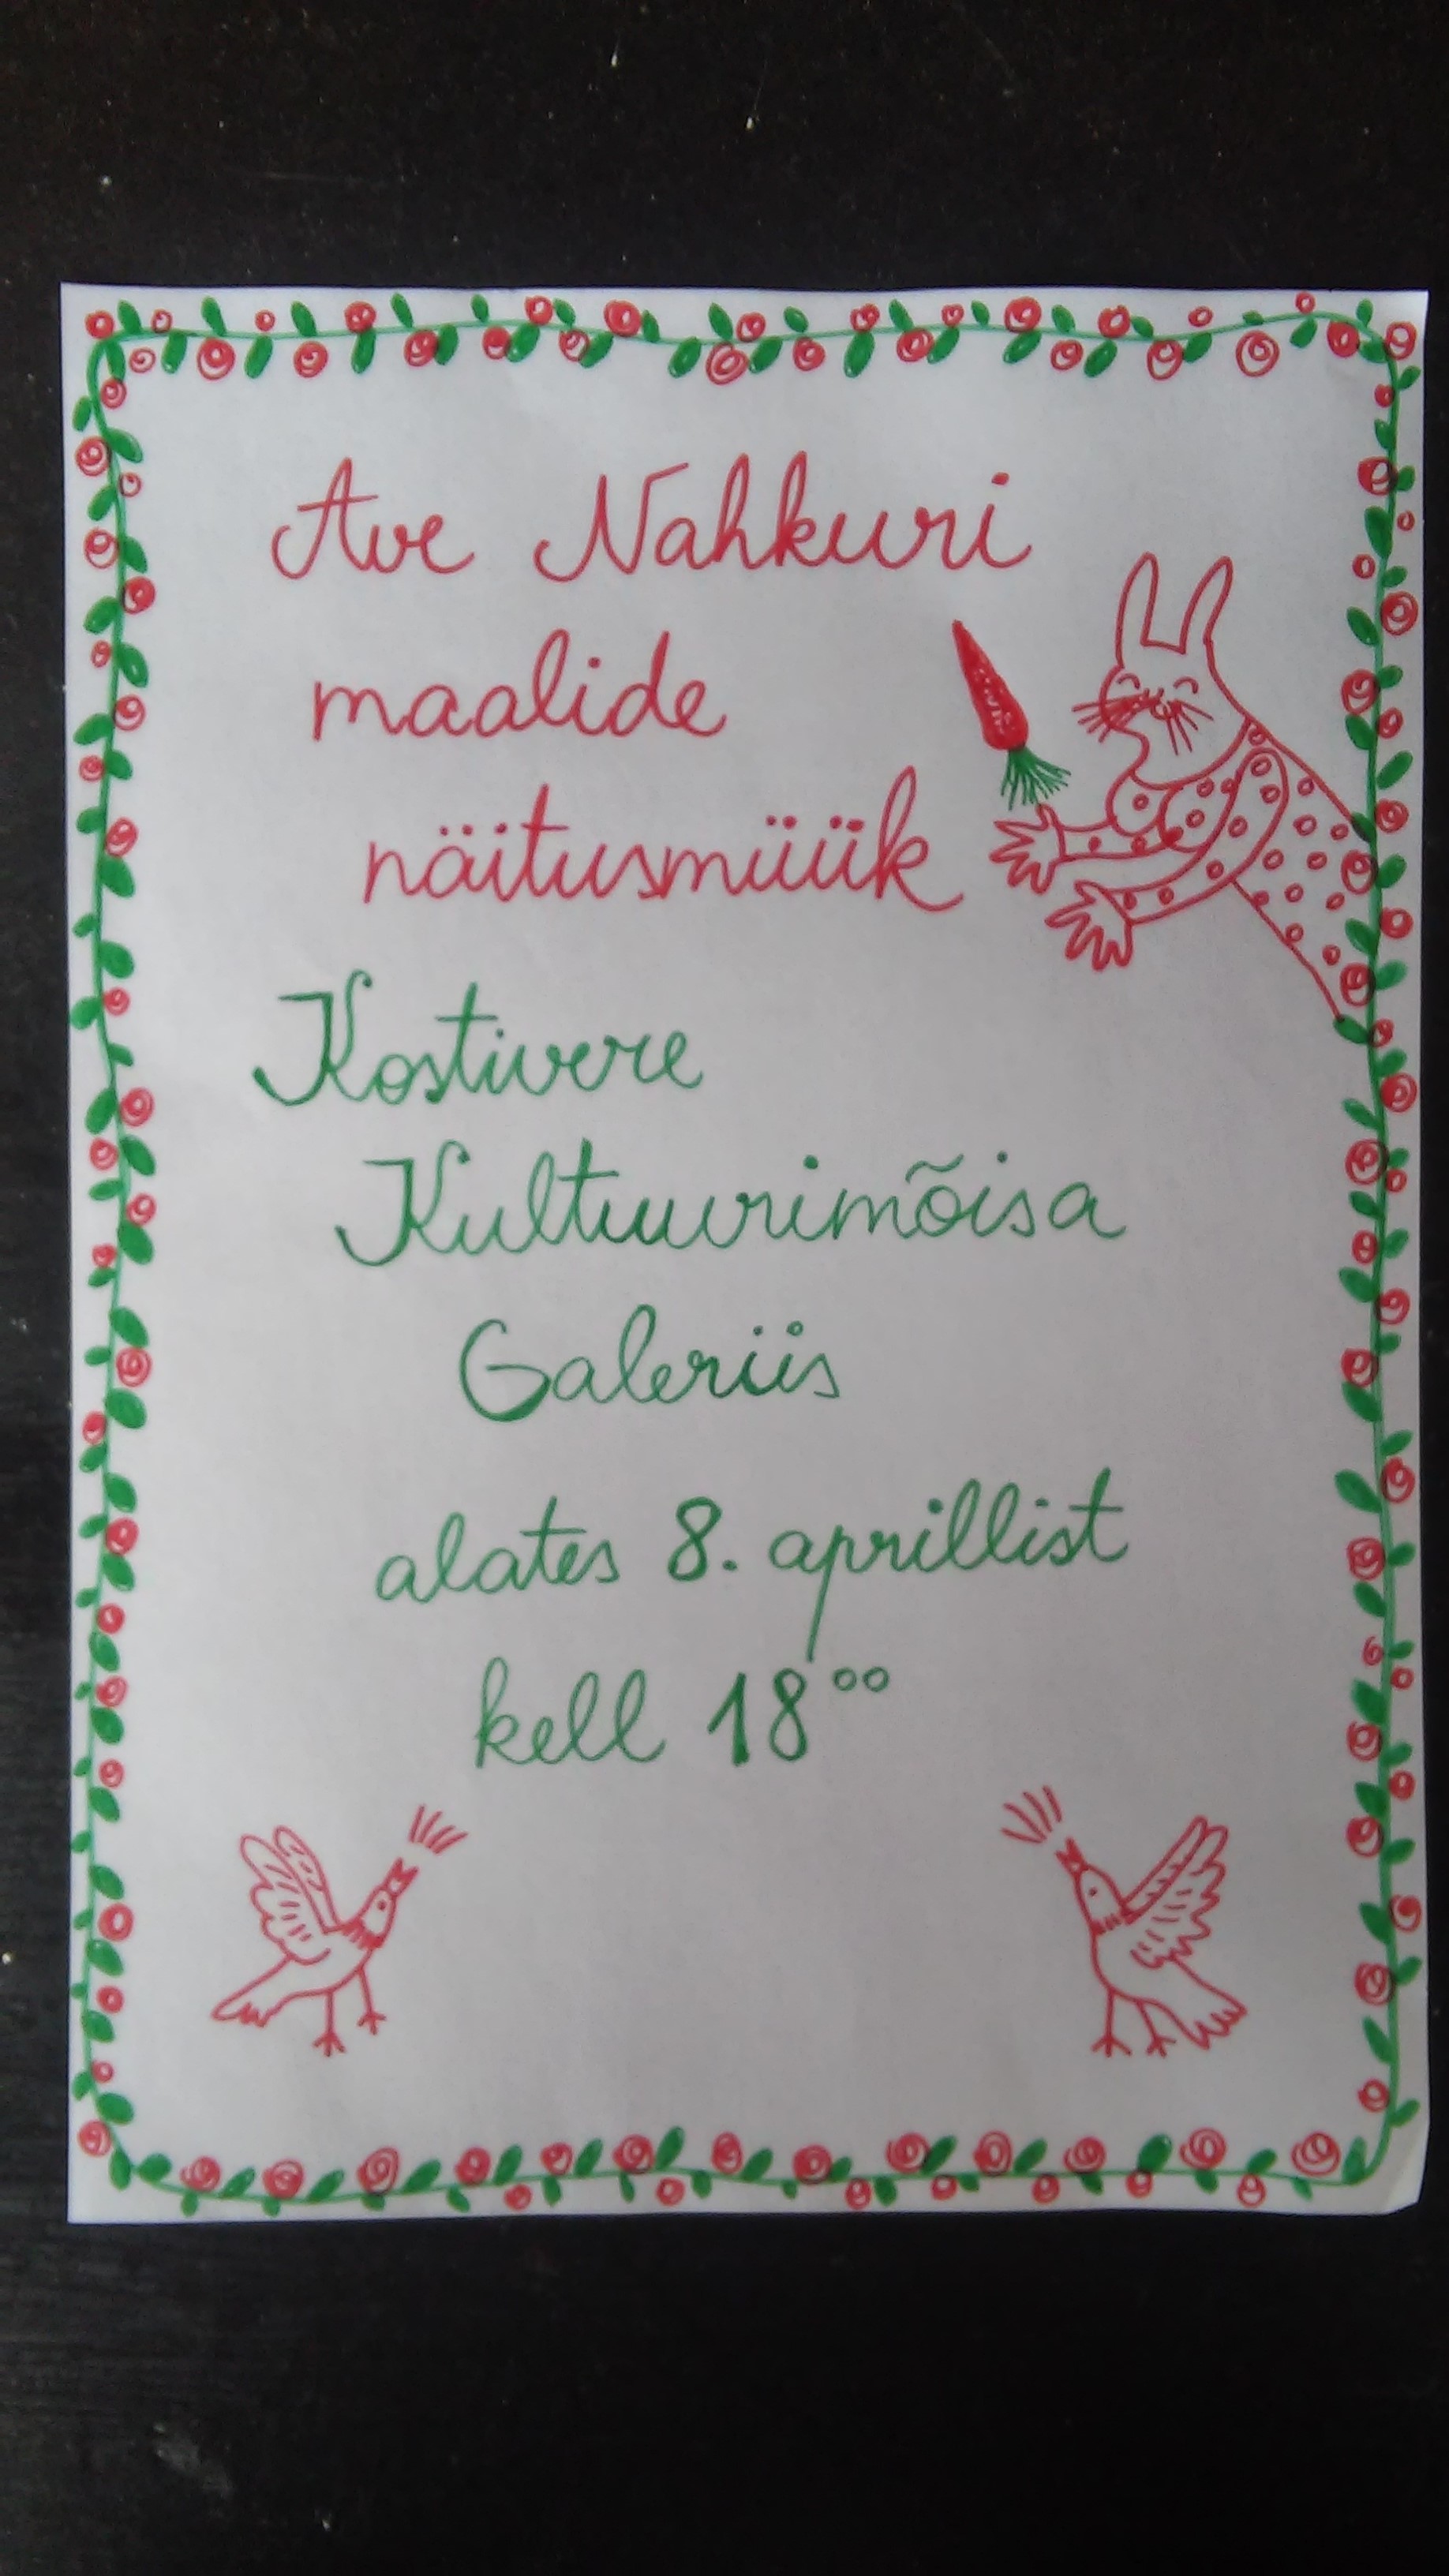 Ave Nahkuri
maalide
näitusmüük
Kostivere
Kultuurimõisa
Galeriis
alates 8. aprillist
kell 18⁰⁰